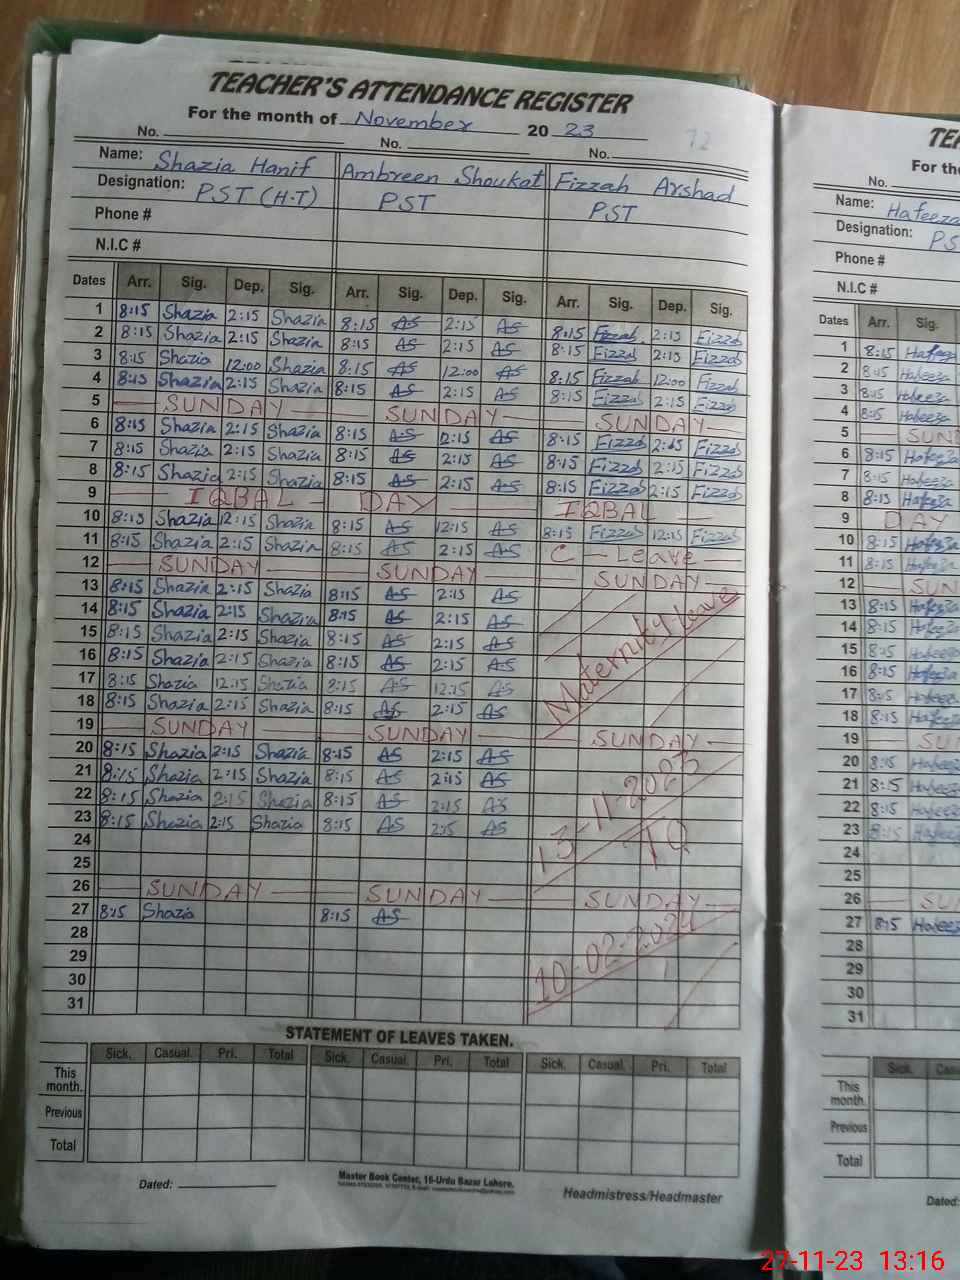 TEACHER'S ATTENDANCE REGISTER
For the month of November 20 23
12
No. No. No.
Name: Shazia Hanif Ambreen Shoukat Fizzah Arshad
Designation: PST (H.T) PST PST
Phone #
N.I.C #
Dates Arr. Sig. Dep. Sig. Arr. Sig. Dep. Sig. Arr. Sig. Dep. Sig.
1 8:15 Shazia 2:15 Shazia 8:15 AS 2:15 AS 8:15 Fizzah 2:15 Fizzah
2 8:15 Shazia 2:15 Shazia 8:15 AS 2:15 AS 8:15 Fizzah 2:15 Fizzah
3 8:15 Shazia 12:00 Shazia 8:15 AS 12:00 AS 8:15 Fizzah 12:00 Fizzah
4 8:15 Shazia 2:15 Shazia 8:15 AS 2:15 AS 8:15 Fizzah 2:15 Fizzah
5 SUNDAY SUNDAY SUNDAY
6 8:15 Shazia 2:15 Shazia 8:15 AS 2:15 AS 8:15 Fizzah 2:15 Fizzah
7 8:15 Shazia 2:15 Shazia 8:15 AS 2:15 AS 8:15 Fizzah 2:15 Fizzah
8 8:15 Shazia 2:15 Shazia 8:15 AS 2:15 AS 8:15 Fizzah 2:15 Fizzah
9 IQBAL DAY IQBAL
10 8:15 Shazia 12:15 Shazia 8:15 AS 12:15 AS 8:15 Fizzah 12:15 Fizzah
11 8:15 Shazia 2:15 Shazia 8:15 AS 2:15 AS C - Leave
12 SUNDAY SUNDAY SUNDAY
13 8:15 Shazia 2:15 Shazia 8:15 AS 2:15 AS
14 8:15 Shazia 2:15 Shazia 8:15 AS 2:15 AS
15 8:15 Shazia 2:15 Shazia 8:15 AS 2:15 AS
16 8:15 Shazia 2:15 Shazia 8:15 AS 2:15 AS
17 8:15 Shazia 12:15 Shazia 8:15 AS 12:15 AS
18 8:15 Shazia 2:15 Shazia 8:15 AS 2:15 AS
Maternity leave
19 SUNDAY SUNDAY SUNDAY
20 8:15 Shazia 2:15 Shazia 8:15 AS 2:15 AS
21 8:15 Shazia 2:15 Shazia 8:15 AS 2:15 AS
22 8:15 Shazia 2:15 Shazia 8:15 AS 2:15 AS
23 8:15 Shazia 2:15 Shazia 8:15 AS 2:15 AS
13-11-2023
TO
24
25
26 SUNDAY SUNDAY SUNDAY
27 8:15 Shazia 8:15 AS
10-02-2024
28
29
30
31
STATEMENT OF LEAVES TAKEN.
Sick. Casual. Pri. Total Sick. Casual. Pri. Total Sick. Casual. Pri. Total
This month.
Previous
Total
Dated:
Master Book Center, 16-Urdu Bazar Lahore.
Headmistress/Headmaster
TEA
For the
No.
Name: Hafeeza
Designation: PS
Phone #
N.I.C #
Dates Arr. Sig.
1 8:15 Hafeeza
2 8:15 Hafeeza
3 8:15 Hafeeza
4 8:15 Hafeeza
5 SUN
6 8:15 Hafeeza
7 8:15 Hafeeza
8 8:15 Hafeeza
9 DAY
10 8:15 Hafeeza
11 8:15 Hafeeza
12 SUN
13 8:15 Hafeeza
14 8:15 Hafeeza
15 8:15 Hafeeza
16 8:15 Hafeeza
17 8:15 Hafeeza
18 8:15 Hafeeza
19 SU
20 8:15 Hafeeza
21 8:15 Hafeeza
22 8:15 Hafeeza
23 8:15 Hafeeza
24
25
26 SU
27 8:15 Hafeeza
28
29
30
31
Sick. Cas
This month.
Previous
Total
Dated:
27-11-23 13:16